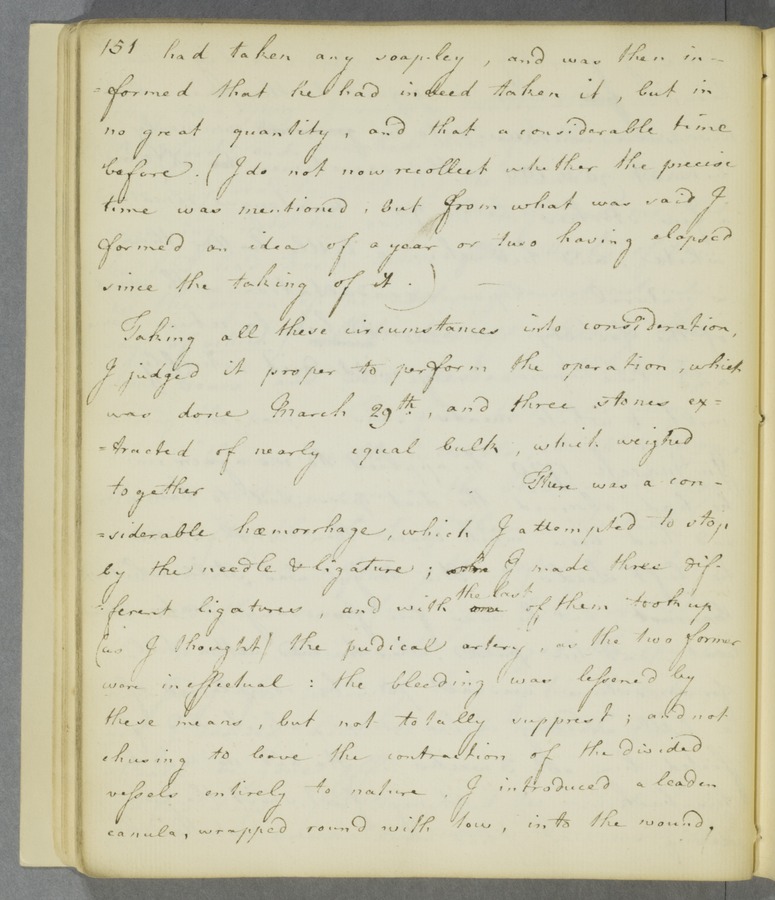 151 had taken any soap-ley, and was then in-
=formed that he had indeed taken it, but in
no great quantity, and that a considerable time
before. (I do not now recollect whether the precise
time was mentioned, but from what was said I
formed an idea of a year or two having elapsed
since the taking of it.) —
Taking all these circumstances into consideration,
I judged it proper to perform the operation, which
was done March 29th, and three stones ex=
=tracted of nearly equal bulk, which weighed
together . There was a con-
=siderable hæmorrhage, which I attempted to stop
by the needle & ligature; I made three dif-
the last
=ferent ligatures, and with one of them took up
(as I thought) the pudical artery, as the two former
were ineffectual: the bleeding was lessened by
these means, but not totally supprest; and not
chusing to leave the contraction of the divided
vessels entirely to nature, I introduced a leaden
canula, wrapped round with tow, into the wound,